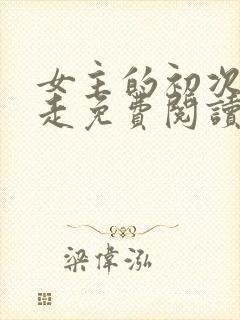 女主的初次
走免費閱讀
梁偉泓